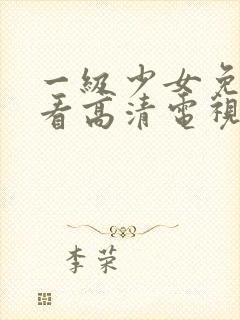 一級少女免
看高清電視
李荣